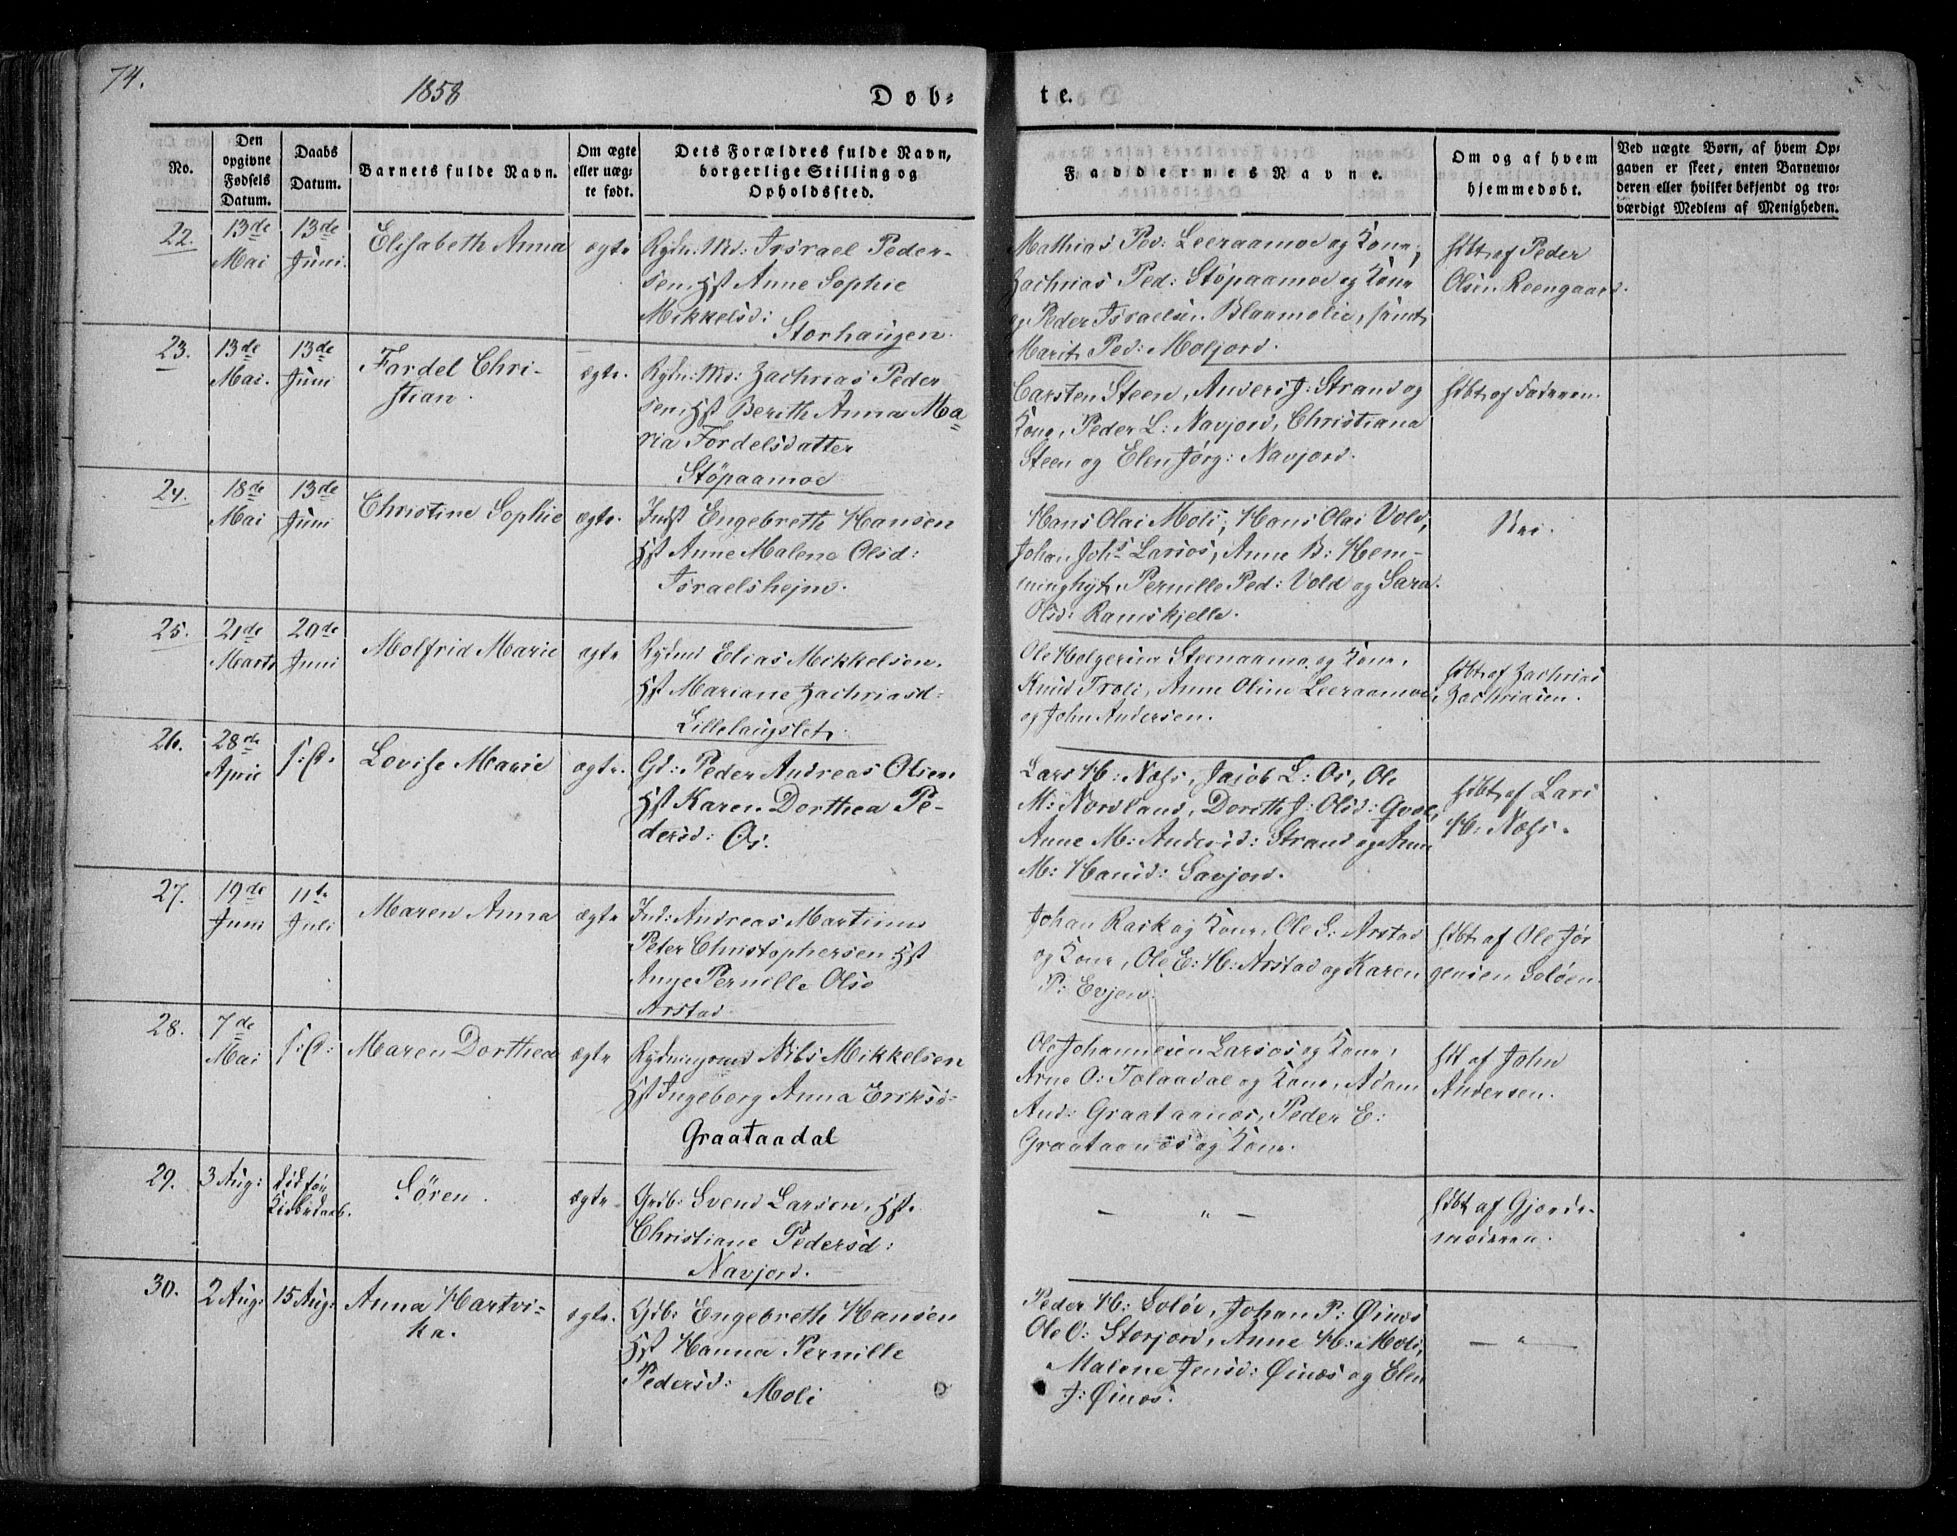 74.
1858
Døb-
te.
No.
Den
opgivne
Fødsels
Datum.
Daabs
Datum.
Barnets fulde Navn.
Om ægte
eller uæg-
te født.
Dets Forældres fulde Navn,
borgerlige Stilling og
Opholdssted.
Faddernes Navne.
Om og af hvem
hjemmedøbt.
Ved uægte Børn, af hvem Op-
gaven er skeet, enten Barnemo-
deren eller hvilket bekjendt og tro-
værdigt Medlem af Menigheden.
22.
13de
Mai
13de
Juni.
Elisabeth Anna
ægte
Rydn: Md: Israel Peder-
sen, Hst Anne Sophie
Mikkelsd:
Storhaugen.
Mathias Ped: Leeraamoe og Kone,
Zachrias Ped: Stöpaamoe og Kone
og Peder Israelsen Blaamolie, samt
Marit Ped: Moljord.
Hdbt af Peder
Olsen Reengaard.
23.
13de
Mai.
13de
Juni
Fordel Chri-
stian.
ægte.
Rydn: Md: Zachrias Peder
sen, Hst Berith Anna Ma
ria Fordelsdatter
Stöpaamoe
Carsten Steen, Anders J: Strand og
Kone, Peder L: Navjord, Christiana
Steen og Elen Jörg: Navjord.
Hdbt af Faderen.
24.
18de
Mai
13de
Juni
Christine Sophie
ægte.
Indst Engebreth Hansen
Hst Anne Malene Olsd:
Israelshejm.
Hans Olai Moli, Hans Olai Vold,
Johan Johs Larsos, Anne B: Hem-
minghyt, Pernille Ped: Vold og Sara
Olsd: Ramskjelle.
Nei.
25.
21de
Marts
20de
Juni
Molfrid Marie
ægte
Rydmd Elias Mikkelsen.
Hst Mariane Zachriasd:
Lillelaugslet.
Ole Holgersen Steenaamo og Kone,
Knud Troli, Anne Oline Leeraamoe
og John Andersen.
Hdbt af Zachrias
Zachriasen.
26.
28de
April
s: D.
Lovise Marie
ægte.
Gd: Peder Andreas Olsen
Hst Karen Dorthea Pe-
dersd: Os.
Lars H: Næss, Jacob L: Os, Ole
M: Nordland, Doreth J: Olsd: Qvæl,
Anne M: Andersd: Strand og Anne
M: Hansd: Savjord.
Hdbt af Lars
H: Næss.
27.
19de
Juni
11te
Juli
Maren Anna
ægte
Ind: Andreas Martinus
Peter Christophersen Hst
Anne Pernille Olsd
Arstad.
Johan Rask og Kone, Ole G: Arstad
og Kone, Ole E: H: Arstad og Karen
P: Evjen.
Hdbt af Ole Jör
gensen Soløen.
28.
7de
Mai
s: D:
Maren Dorthea
ægte
Rydningsmd Nils Mikkelsen
Hst Ingeborg Anna Eriksd:
Graataadal
Ole Johannesen Larsos og Kone,
Arne O: Tolaadal og Kone, Adam
And: Graataanæs, Peder E:
Graataanæs og Kone.
Hdt af John
Andersen.
29.
3 Aug:
Död før
Kirkedaab.
Sören.
ægte.
Grb: Svend Larsen, Hst.
Christiane Pedersd:
Navjord.
— " —
Hdbt af Gjorde-
moderen.
30.
2 Aug:
15 Aug:
Anna Hartvi-
ka.
ægte.
Gdb: Engebreth Hansen
Hst Hanna Pernille
Pedersd:
Moli
Peder H: Soløv, Johan P: Øinæs
Ole O: Storjord, Anne H: Moli,
Malene Jensd: Øinæs og Elen
J: Øinæs.
— " —